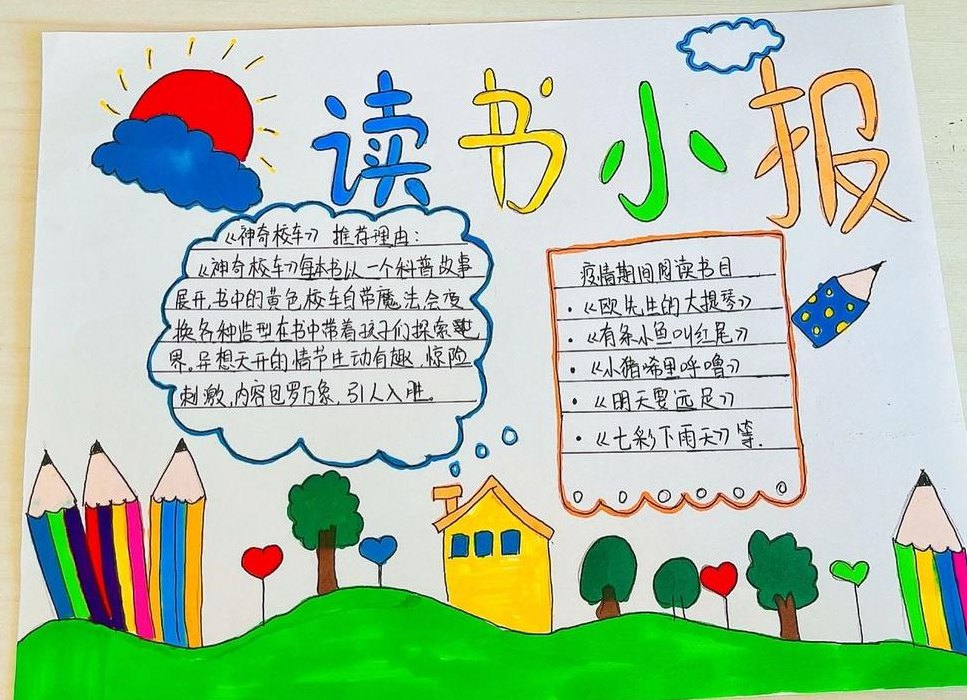 读书小报
《神奇校车》 推荐理由：
《神奇校车》每本书以一个科普故事
展开，书中的黄色校车自带魔法会变
换各种造型在书中带着孩子们探索世
界。异想天开的情节生动有趣，惊险
刺激，内容包罗万象，引人入胜。
疫情期间阅读书目
·《欧先生的大提琴》
·《有条小鱼叫红尾》
·《小猪唏里呼噜》
·《明天要远足》
·《七彩下雨天》等.